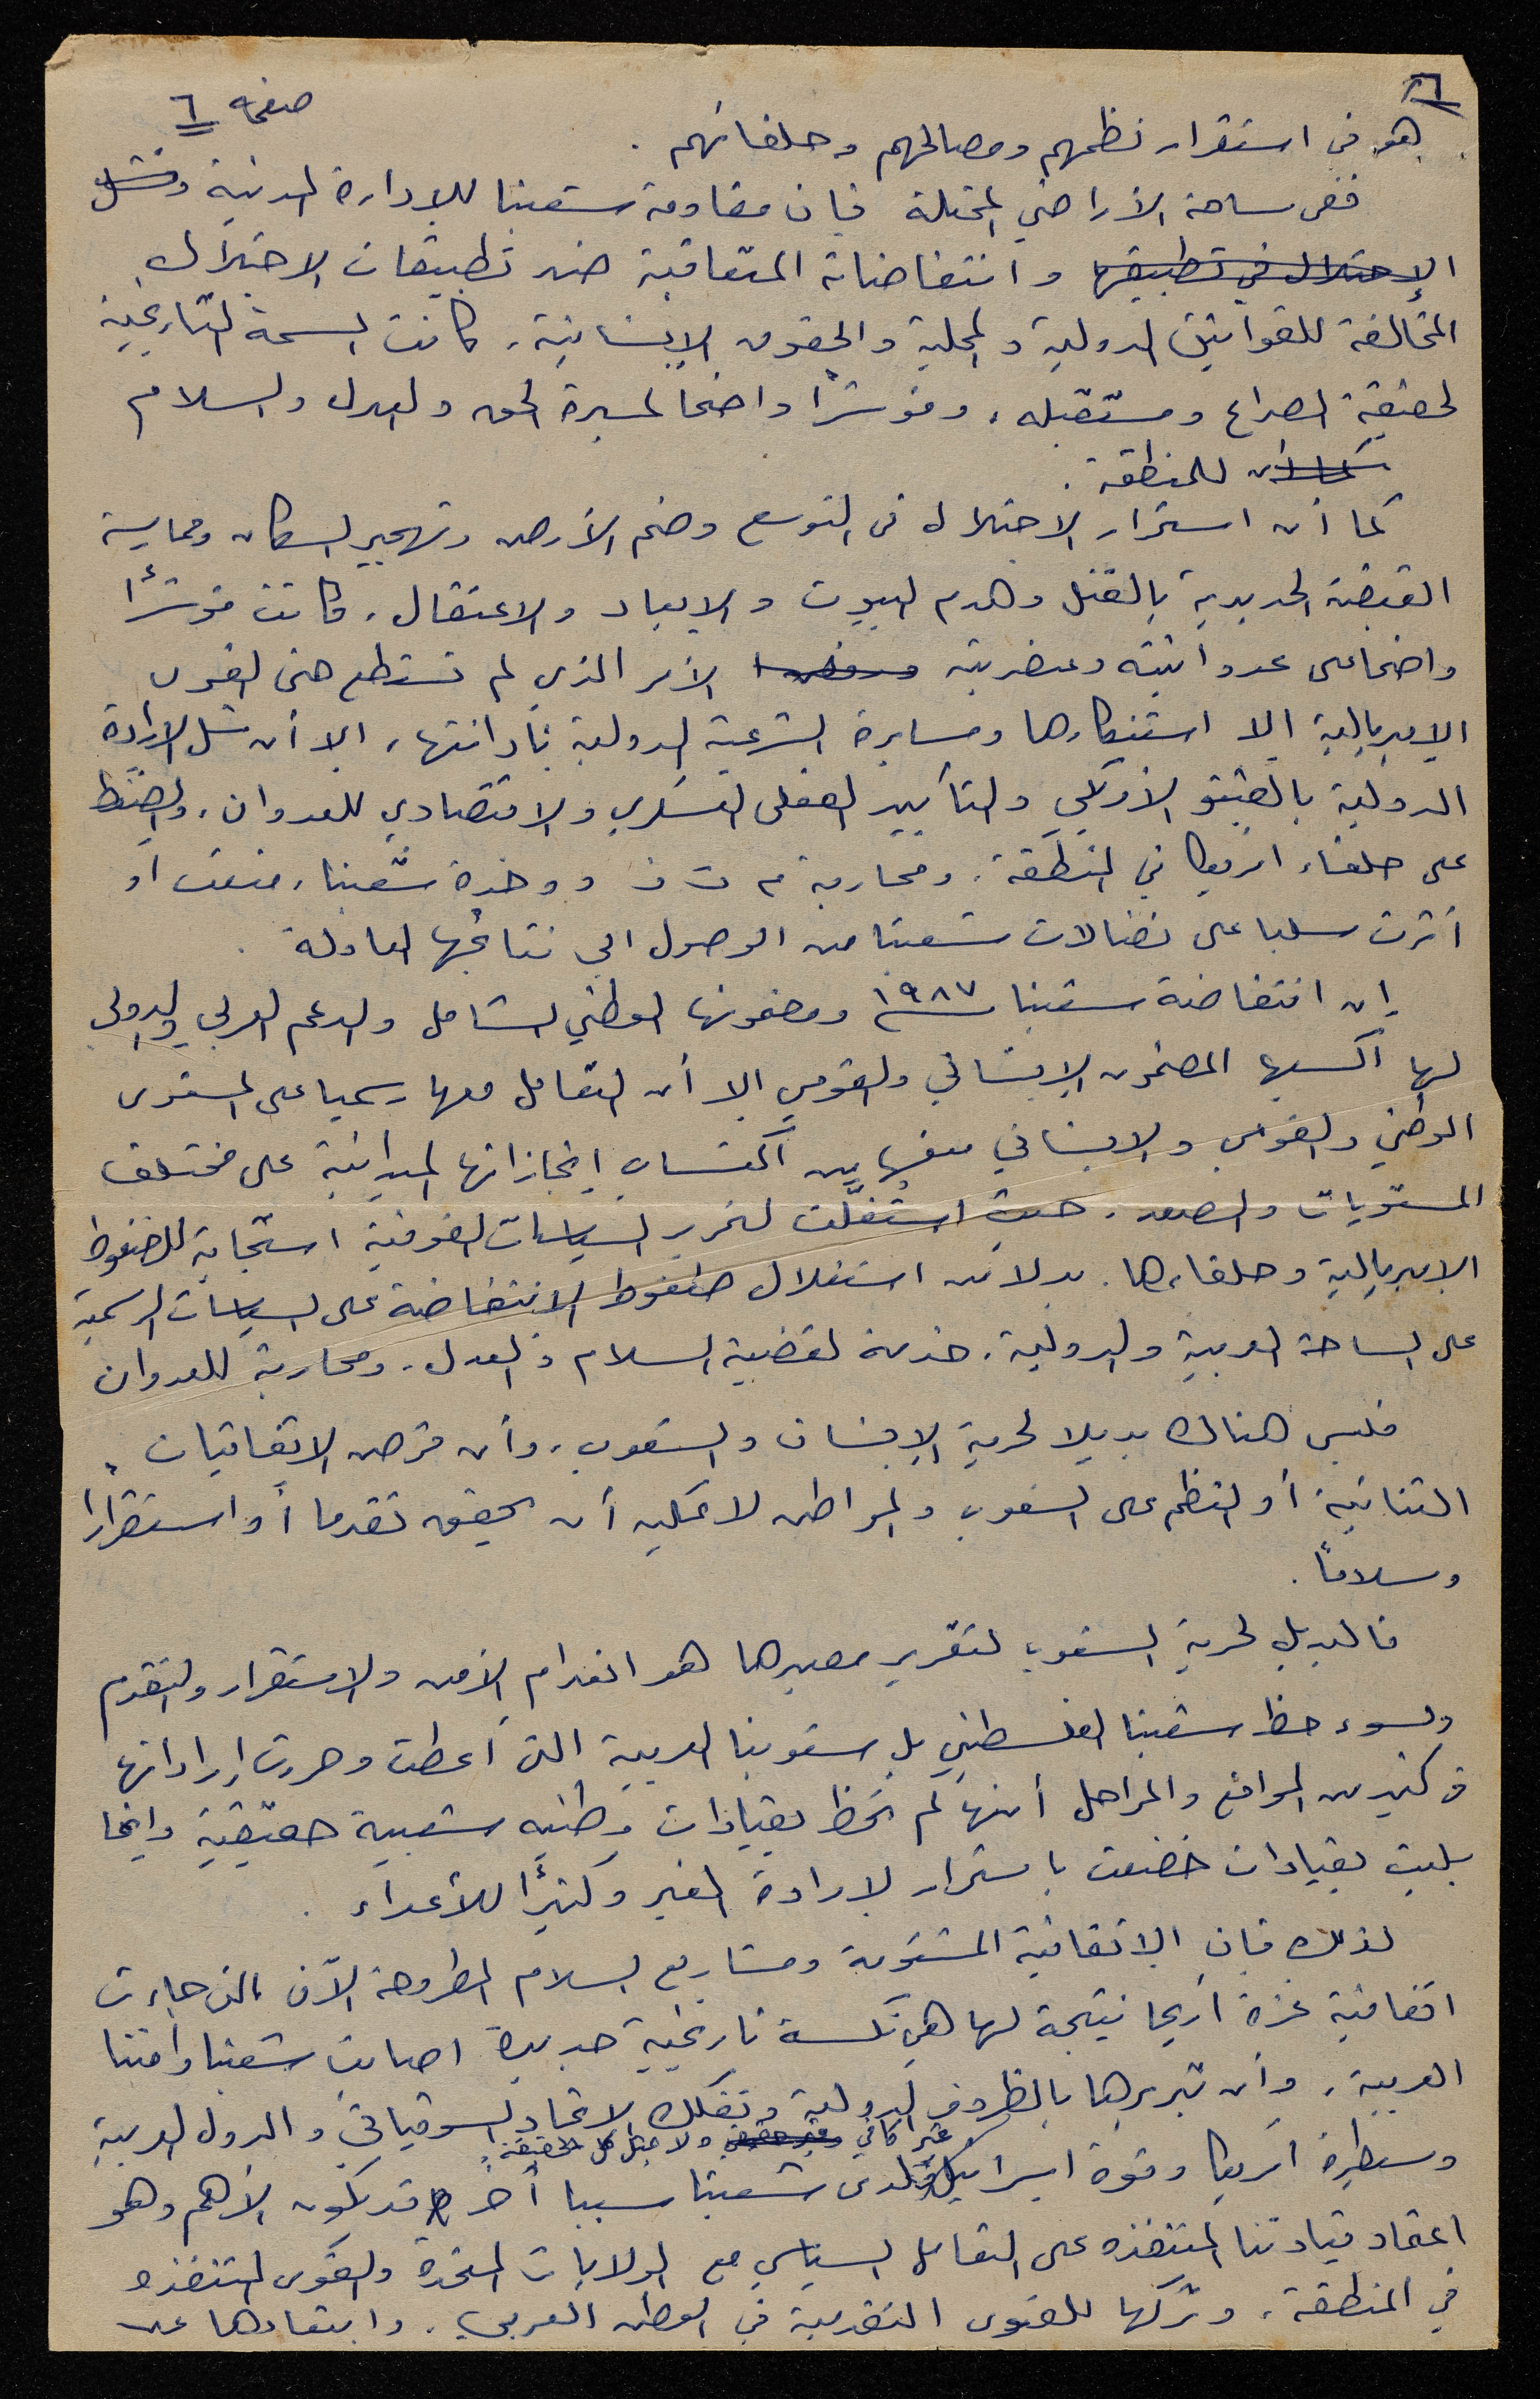 ٦
صفحة ٦
هو في استقرار نظمهم ومصالحهم وحلفائهم .
ففي ساحة الأراضي المحتلة فان مقاومة شعبنا للإدارة المدنية وفشل
الإحتلال في تطبيقها وانتفاضاته المتعاقبة ضد تطبيقات الاحتلال
المخالفة للقوانين الدولية والمحلية والحقوق الإنسانية، كانت السمة التاريخية
لحقيقة الصراع ومستقبله، ومؤشرًا واضحا لمسيرة الحق والعدل والسلام
للمنطقة .
كما أن استمرار الاحتلال في التوسع وضم الأرض وتهجير السكان وممارسة
القبضة الحديدية بالقتل وهدم البيوت والإبعاد والاعتقال، كانت مؤشرًا
واضحا على عدوانيته وعنصريته الأمر الذي لم تستطع حتى القوى
الإمبريالية إلا استنكارها ومسايرة الشرعية الدولية بإدانتها، إلا أن شل الإرادة
الدولية بالفيتو الأمريكي والتأييد الفعلي العسكري والاقتصادي للعدوان، والضغط
على حلفاء امريكا في المنطقة، ومحاربة م ت ف ووحدة شعبنا، منعت أو
أثرت سلبا على نضالات شعبنا من الوصول الى نتائجها العادلة .
إن انتفاضة شعبنا ١٩٨٧ ومضمونها الوطني الشامل والدعم العربي والدولي
لها أكسبها المضمون الإنساني والقومي إلا أن التعامل معها رسميا على المستوى
الوطني والقومي والإنساني منعها من اكتساب إنجازاتها الميدانية على مختلف
المستويات والصعد، حيث استغلت لتمرير السياسات الفوقية استجابة للضغوط
الإمبريالية وحلفاءها، بدلا من استغلال ضغوط الانتفاضة على السياسات الرسمية
على الساحة العربية والدولية، خدمة لقضية السلام والعدل، ومحاربة للعدوان
فليس هناك بديلا لحرية الإنسان والشعوب، وأن فرض الاتفاقيات
الثنائية أو النظم على الشعوب والمواطن لا يمكن أن يحقق تقدما أو استقرارا
وسلامًا .
فالبديل لحرية الشعوب لتقرير مصيرها هو انعدام الأمن والاستقرار والتقدم
ولسوء حظ شعبنا الفلسطيني بل شعوبنا العربية التي أعطت وحررت إراداتها
في كثير من المواقع والمراحل أنها لم تحظ بقيادات وطنية شعبية حقيقية وإنما
بليت بقيادات خضعت باستمرار لإرادة الغير وكثيرًا للأعداء .
لذلك فإن الاتفاقية المشؤومة ومشاريع السلام المطروحة الآن التي جاءت
اتفاقية غزة أريحا نتيجة لها هي نكسة تاريخية جديدة اصابت شعبنا وامتنا
العربية، وأن تبريرها بالظروف الدولية وتفكك الاتحاد السوفياتي والدول العربية
غير كافي ولا تمثل كل الحقيقة،
وسيطرة امريكا وقوة اسرائيل فلدى شعبنا سببا آخر قد يكون الأهم وهو
اعتماد قيادتنا المتنفذه على التعامل السياسي مع الولايات المتحدة والقوى المتنفذه
في المنطقة، وتركها للقوى التقدمية في الوطن العربي، وابتعادها عن